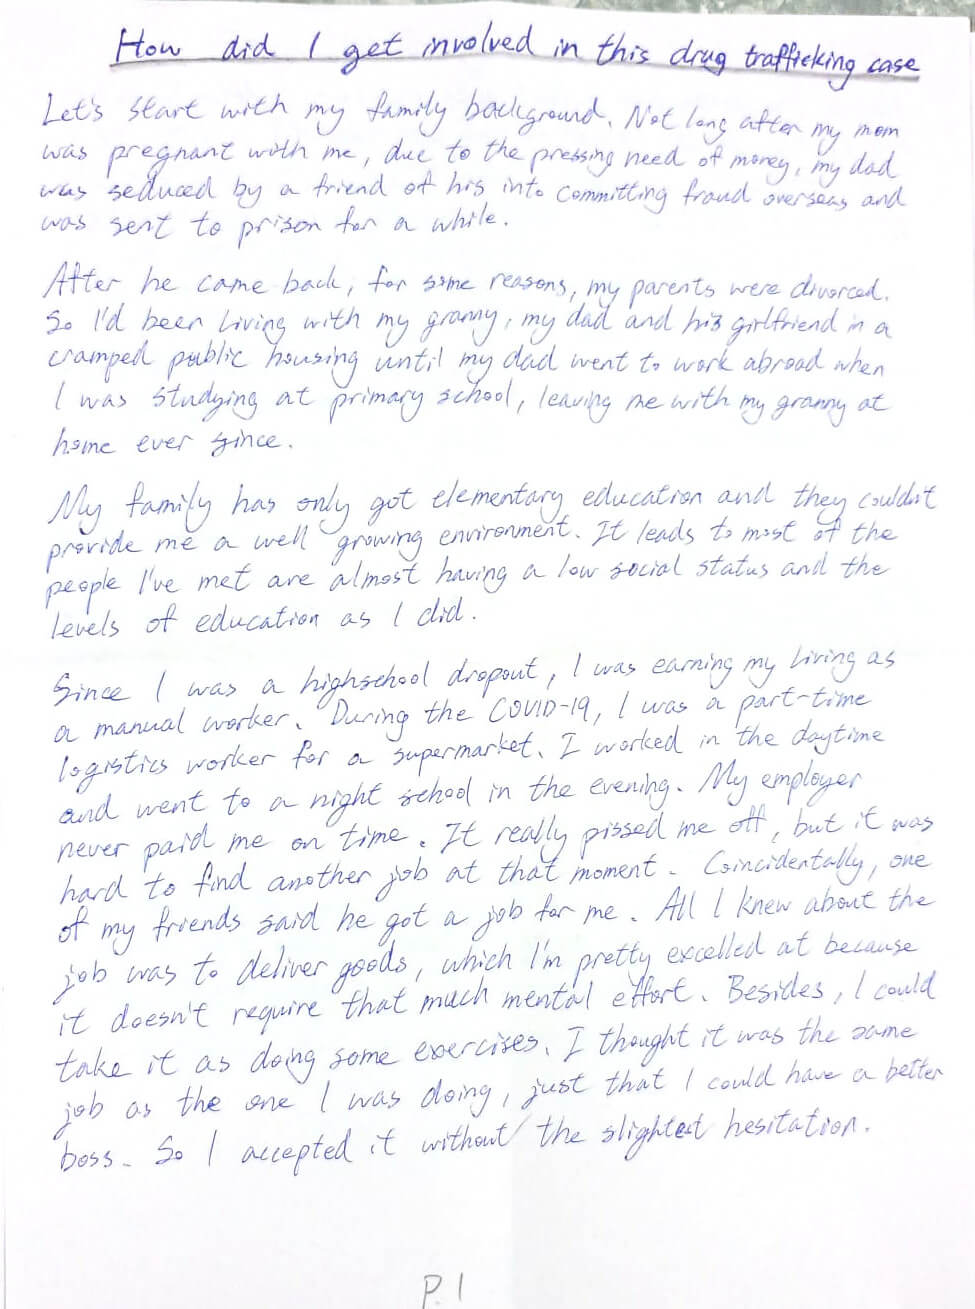 How did I get involved in this drug trafficking case
Let's start with my family background. Not long after my mom
was pregnant with me, due to the pressing need of money, my dad
was seduced by a friend of his into committing fraud overseas and
was sent to prison for a while.
After he came back, for some reasons, my parents were divorced.
So I'd been living with my granny, my dad and his girlfriend in a
cramped public housing until my dad went to work abroad when
I was studying at primary school, leaving me with my granny at
home ever since.
My family has only got elementary education and they couldn't
provide me a well growing environment. It leads to most of the
people I've met are almost having a low social status and the
levels of education as I did.
Since I was a highschool dropout, I was earning my living as
a manual worker. During the COVID-19, I was a part-time
logistics worker for a supermarket. I worked in the daytime
and went to a night school in the evening. My employer
never paid me on time. It really pissed me off, but it was
hard to find another job at that moment. Coincidentally, one
of my friends said he got a job for me. All I knew about the
job was to deliver goods, which I'm pretty excelled at because
it doesn't require that much mental effort. Besides, I could
take it as doing some exercises. I thought it was the same
job as the one I was doing, just that I could have a better
boss. So I accepted it without the slightest hesitation.
P.1